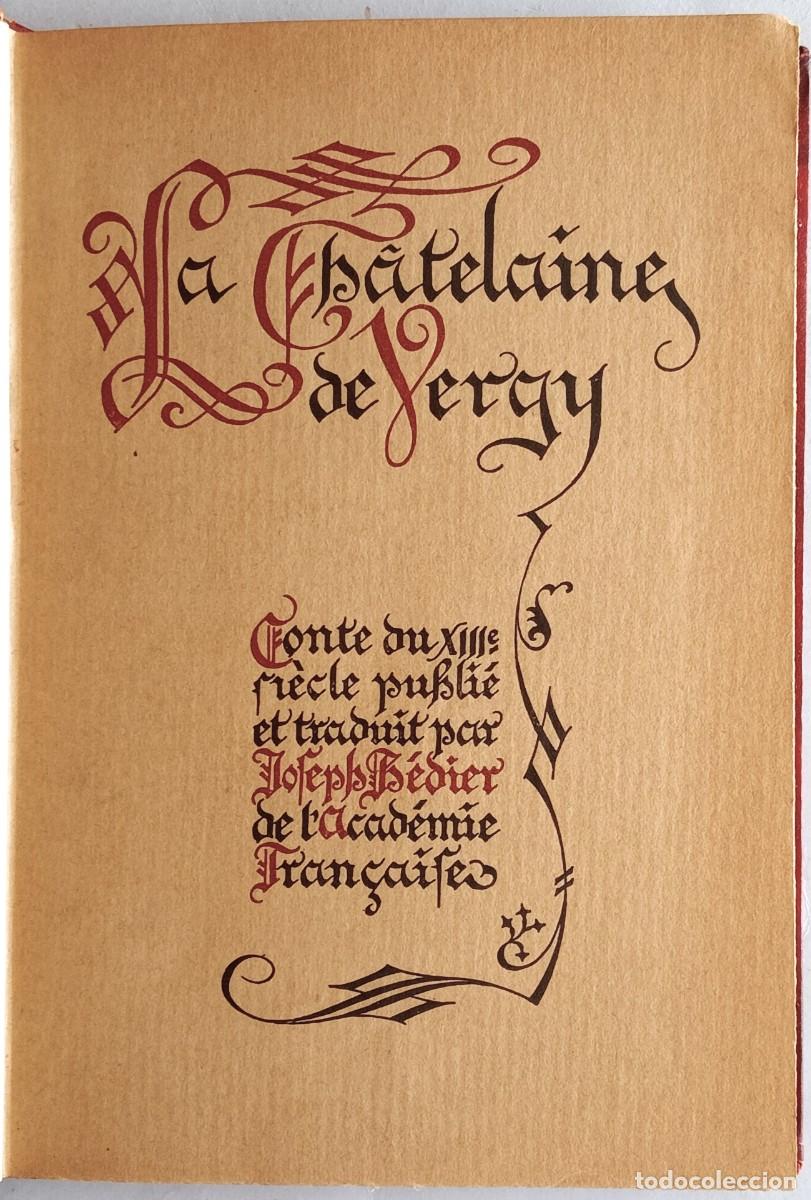 La Châtelaine
de Vergy
Conte du XIIIe
siècle publié
et traduit par
Joseph Bédier
de l'Académie
Française
todocoleccion